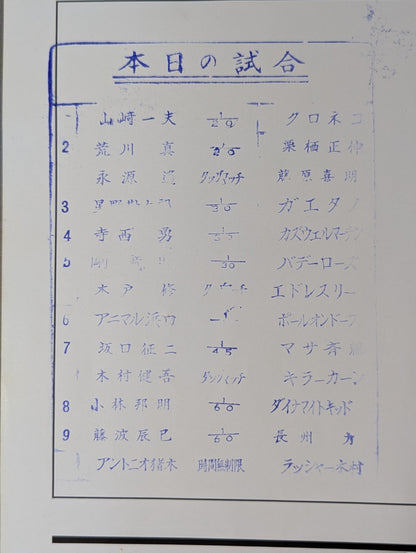 本日の試合
山崎一夫 1/20 クロネコ
2 荒川真 1/20 栗栖正伸
永源遥 タッグマッチ 藤原喜明
3 1/30 ガエタノ
4 寺西勇 カズウェルマーチン
5 1/30 バデーローズ
木戸修 エドレスリー
6 アニマル浜口 ポールオンドーフ
7 坂口征二 1/45 マサ斉藤
木村健吾 タッグマッチ キラーカーン
8 小林邦明 1/60 ダイナマイトキッド
9 藤波辰巳 1/60 長州力
アントニオ猪木 時間無制限 ラッシャー木村